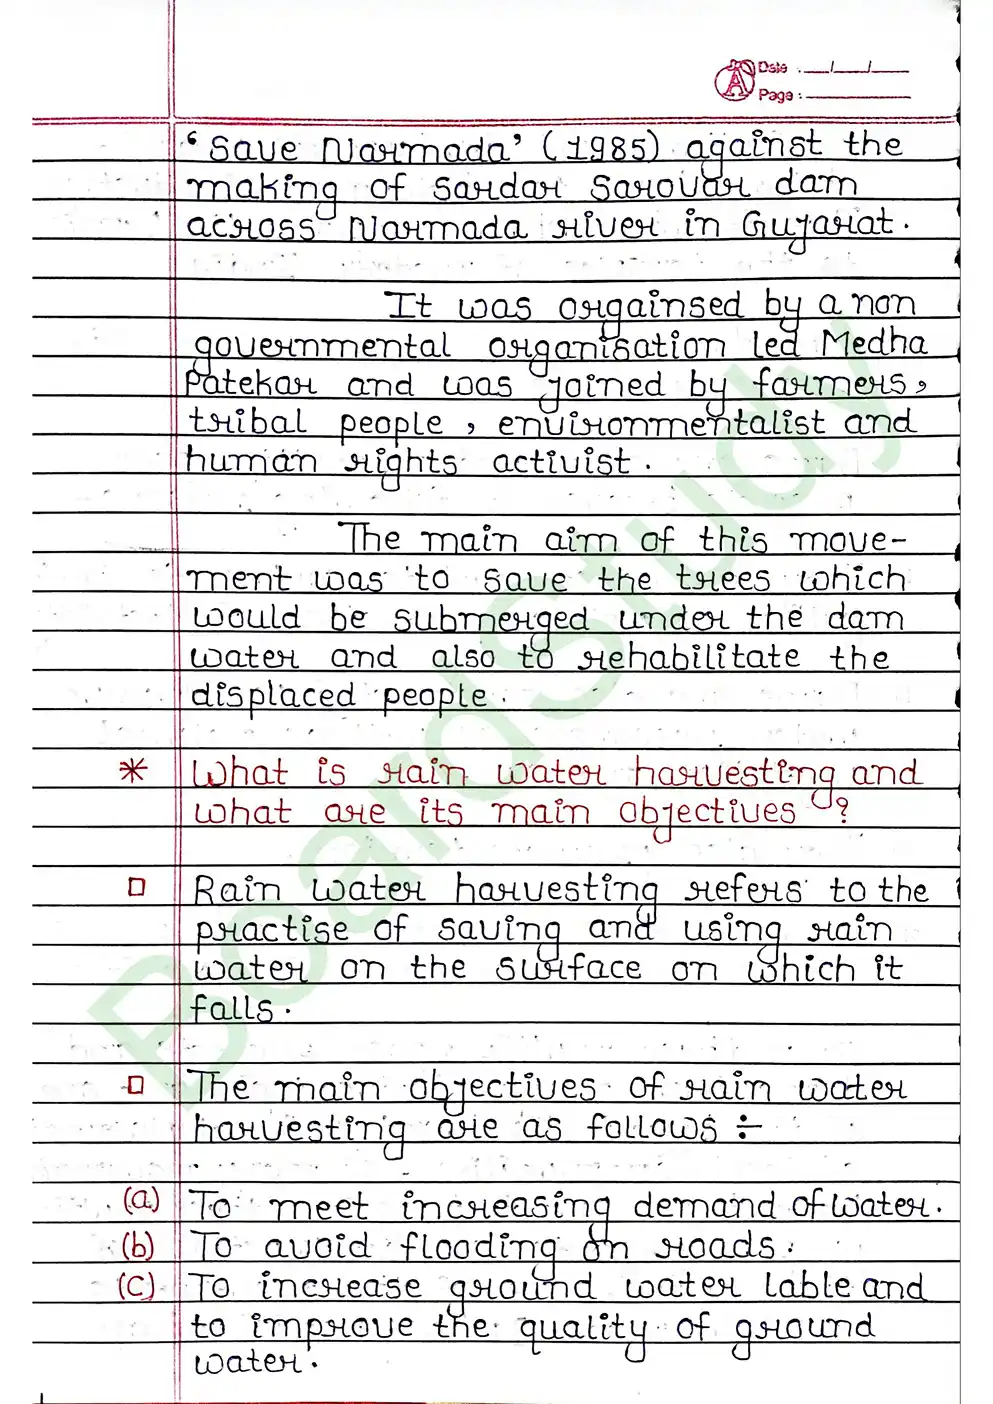 Date : __/__/__
Page :
'Save Narmada' (1985) against the
making of Sardar Sarovar dam
across Narmada river in Gujarat.
It was orgainsed by a non
governmental organisation led Medha
Patekar and was joined by farmers,
tribal people, environmentalist and
human rights activist.
The main aim of this move-
ment was to save the trees which
would be submerged under the dam
water and also to rehabilitate the
displaced people.
* What is rain water harvesting and
what are its main objectives ?
□ Rain water harvesting refers to the
practise of saving and using rain
water on the surface on which it
falls.
□ The main objectives of rain water
harvesting are as follows ÷
(a) To meet increasing demand of water.
(b) To avoid flooding on roads.
(c) To increase ground water lable and
to improve the quality of ground
water.
BoardStudy